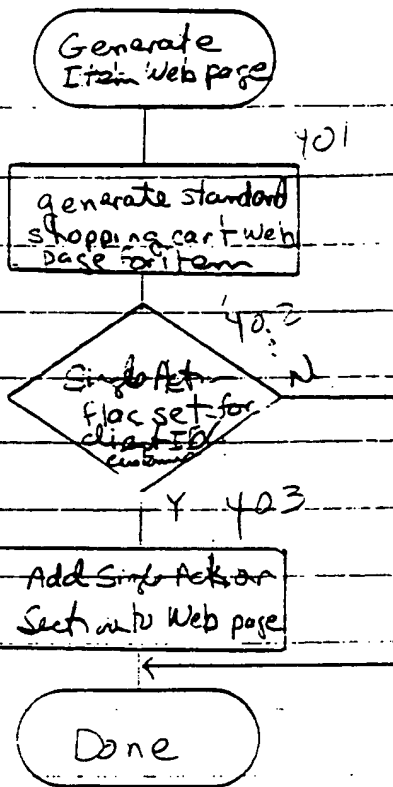 Generate
Item Web page
401
generate standard
shopping cart Web
page for item
402
Single Action
flag set for
client ID/
customer
N
Y 403
Add Single Action
Section to Web page
Done